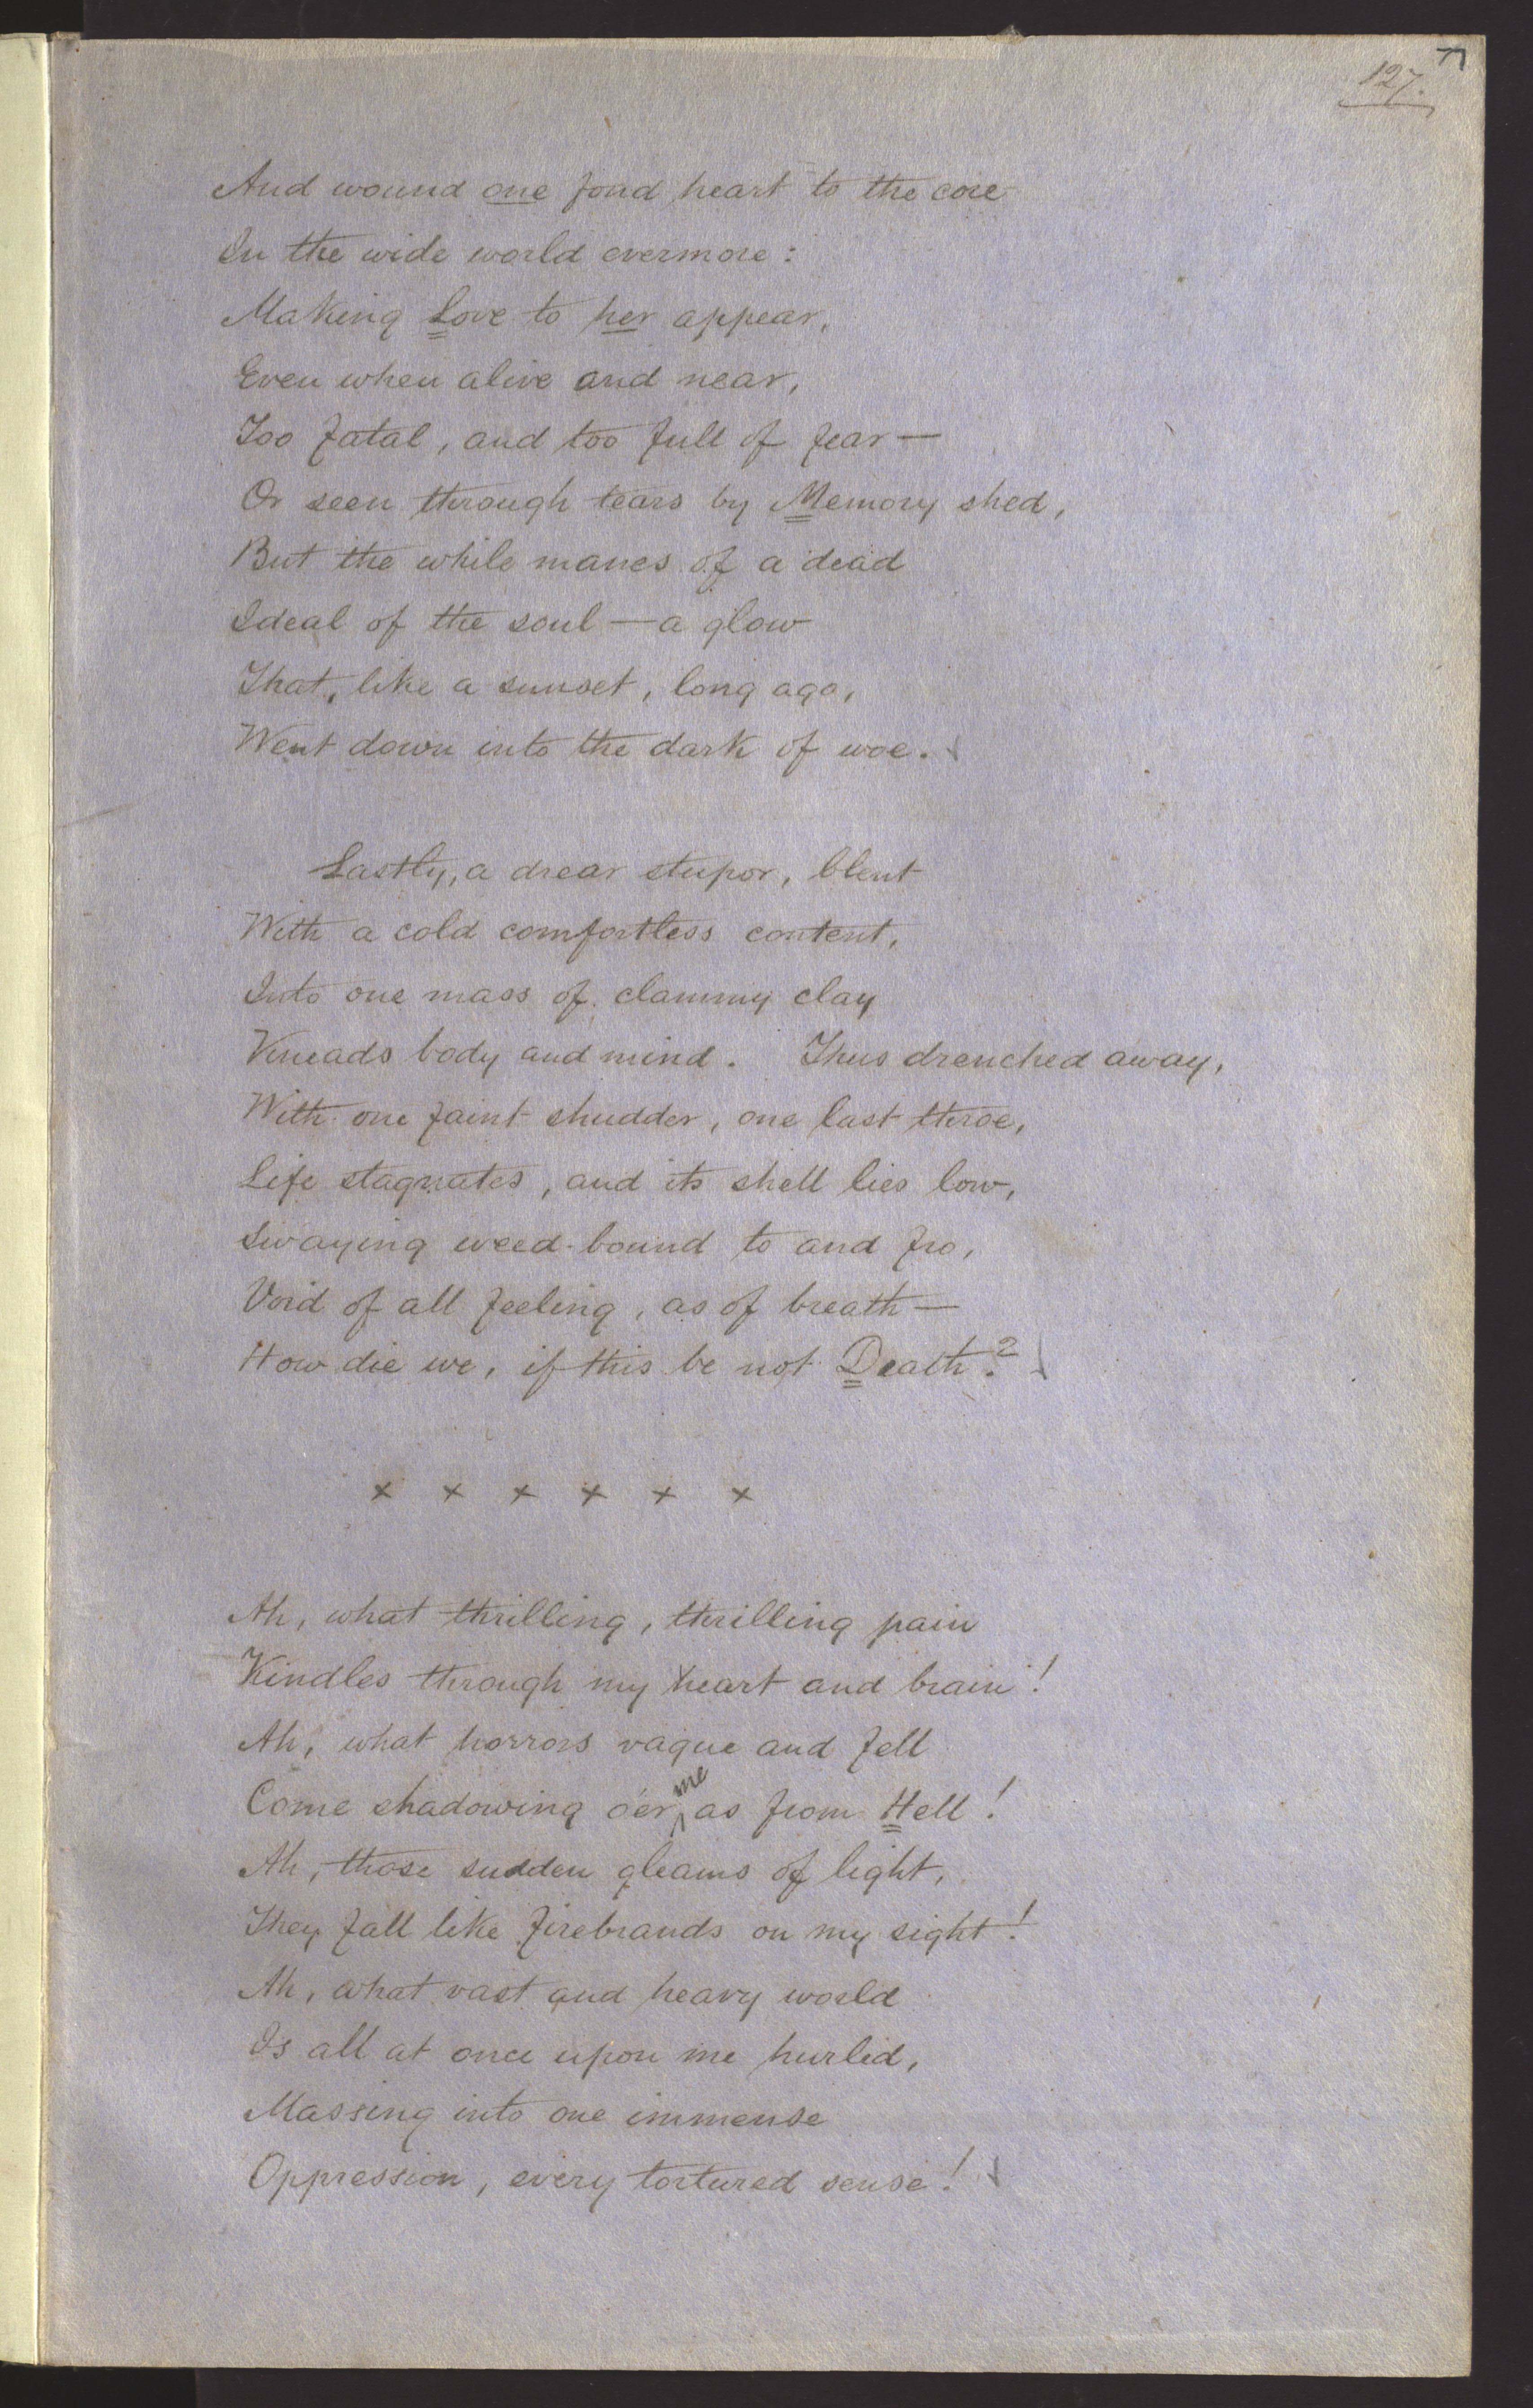 127.
And wound one fond heart to the core
In the wide world evermore:
Making Love to her appear,
Even when alive and near,
Too fatal, and too full of fear—
Or seen through tears by Memory shed,
But the while manes of a dead
Ideal of the soul—a glow
That, like a sunset, long ago,
Went down into the dark of woe.
Lastly, a drear stupor, blent
With a cold comfortless content,
Into one mass of clammy clay
Kneads body and mind. Thus drenched away,
With one faint shudder, one last throe,
Life stagnates, and its shell lies low,
Swaying weed-bound to and fro,
Void of all feeling, as of breath—
How die we, if this be not Death?
x x x x x x
Ah, what thrilling, thrilling pain
Kindles through my heart and brain!
Ah, what horrors vague and fell
Come shadowing o'er me as from Hell!
Ah, those sudden gleams of light,
They fall like firebrands on my sight!
Ah, what vast and heavy world
Is all at once upon me hurled,
Massing into one immense
Oppression, every tortured sense!